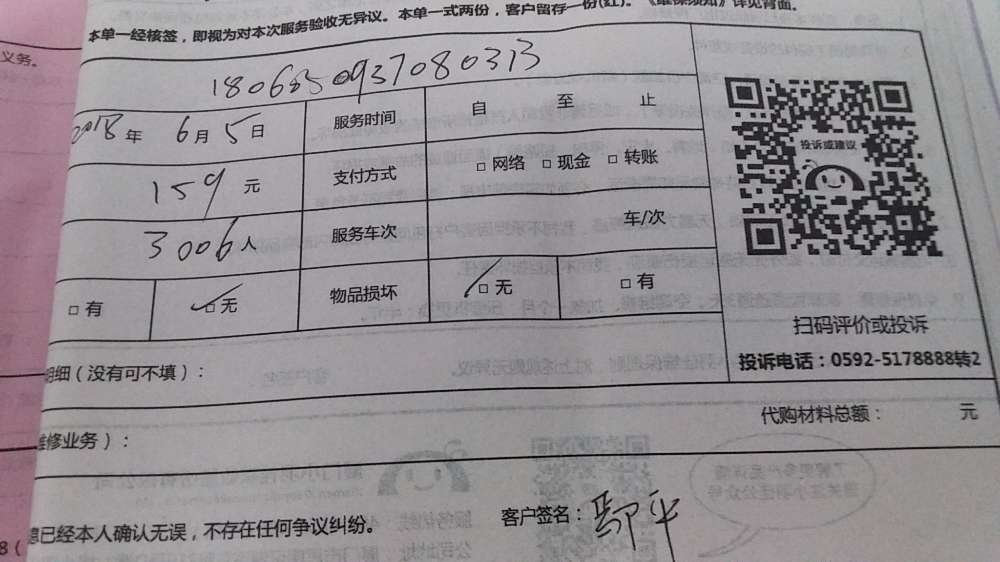 本单一经核签，即视为对本次服务验收无异议。本单一式两份，客户留存一份(红)。《维保须知》详见背面。
义务。
1806850937080313
2018年 6月 5日 服务时间 自 至 止
159 元 支付方式 □ 网络 □ 现金 □ 转账
3006人 服务车次 车/次
□ 有 □ 无 物品损坏 □ 无 □ 有
投诉或建议
扫码评价或投诉
投诉电话：0592-5178888转2
明细（没有可不填）：
代购材料总额： 元
维修业务）：
息已经本人确认无误，不存在任何争议纠纷。 客户签名：鄢平
8（